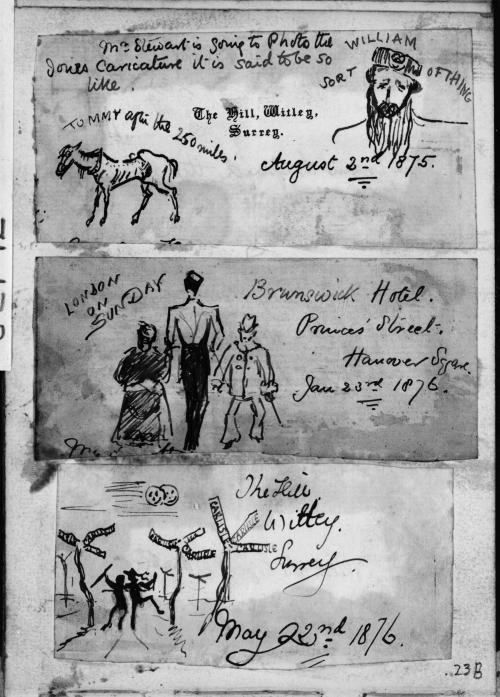 Mr Stewart is going to Photo the
Jones Caricature it is said to be so
like.
WILLIAM
SORT OF THING
TOMMY after the 250 miles.
The Hill, Witley,
Surrey.
August 2nd 1875.
LONDON
ON
SUNDAY
Brunswick Hotel.
Princes Street.
Hanover Sqare.
Jan 23rd 1876.
The Hill
Witley.
Surrey.
CARLISLE
CARLISLE
CARLISLE
CARLISLE
May 22nd 1876.
23B